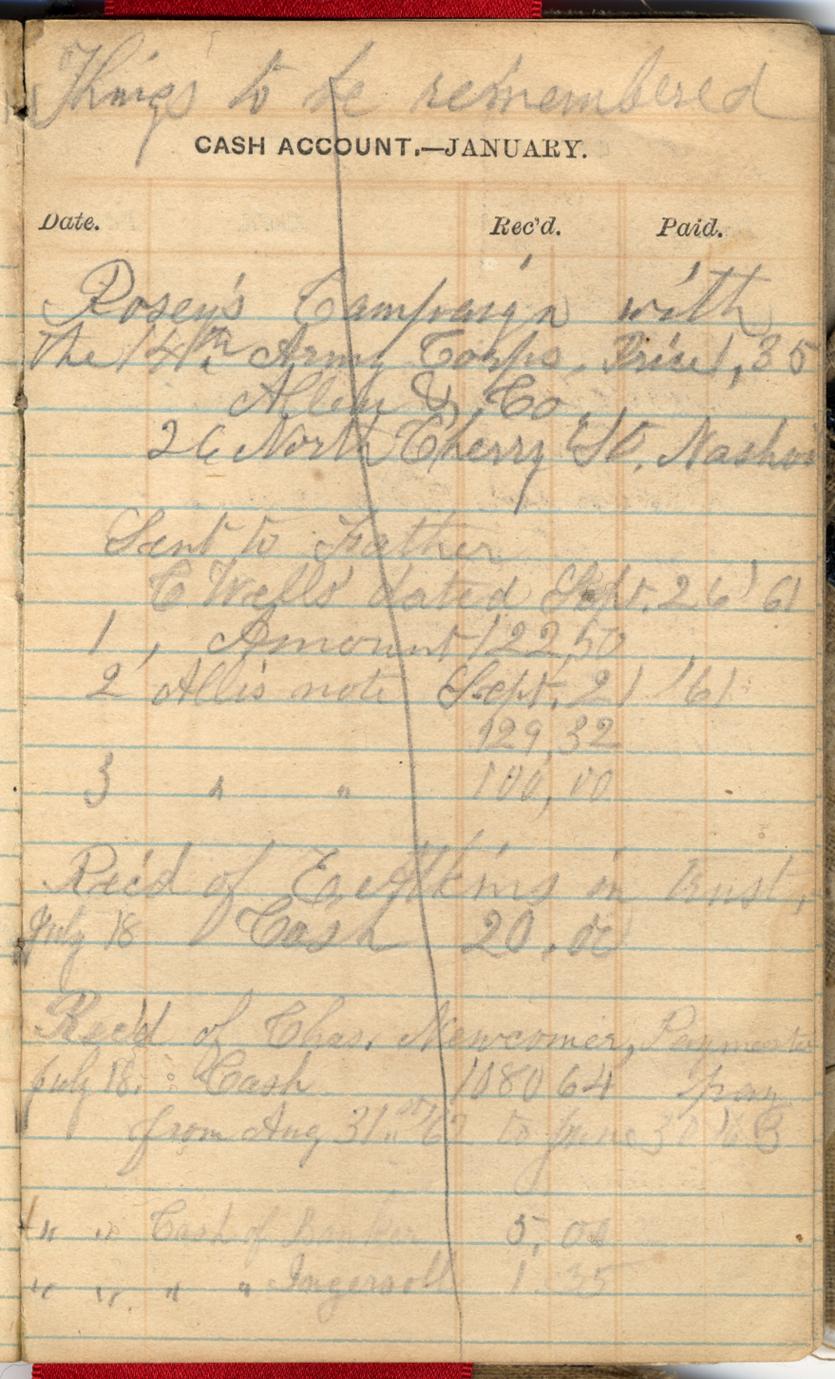 Things to be remembered
CASH ACCOUNT.—JANUARY.
Date. Rec'd. Paid.
Rosey's Campaign with
the 14th Army Corps. Price 1,35
Allen & Co
26 North Cherry St. Nashvi
Sent to Father
C Wells' dated Sept. 26' 61
1, Amount 122,50
2 Allis note Sept. 21 '61
129,32
3 " " 100,00
Rec'd of E. Atkins in trust,
July 18 Cash 20.00
Rec'd of Chas. Newcomer, Paymaster
July 18. Cash 1080 64 pay
from Aug 31st to June 30 '63
" " Cash of Banker 5,00
" " " " Ingersoll 1.35